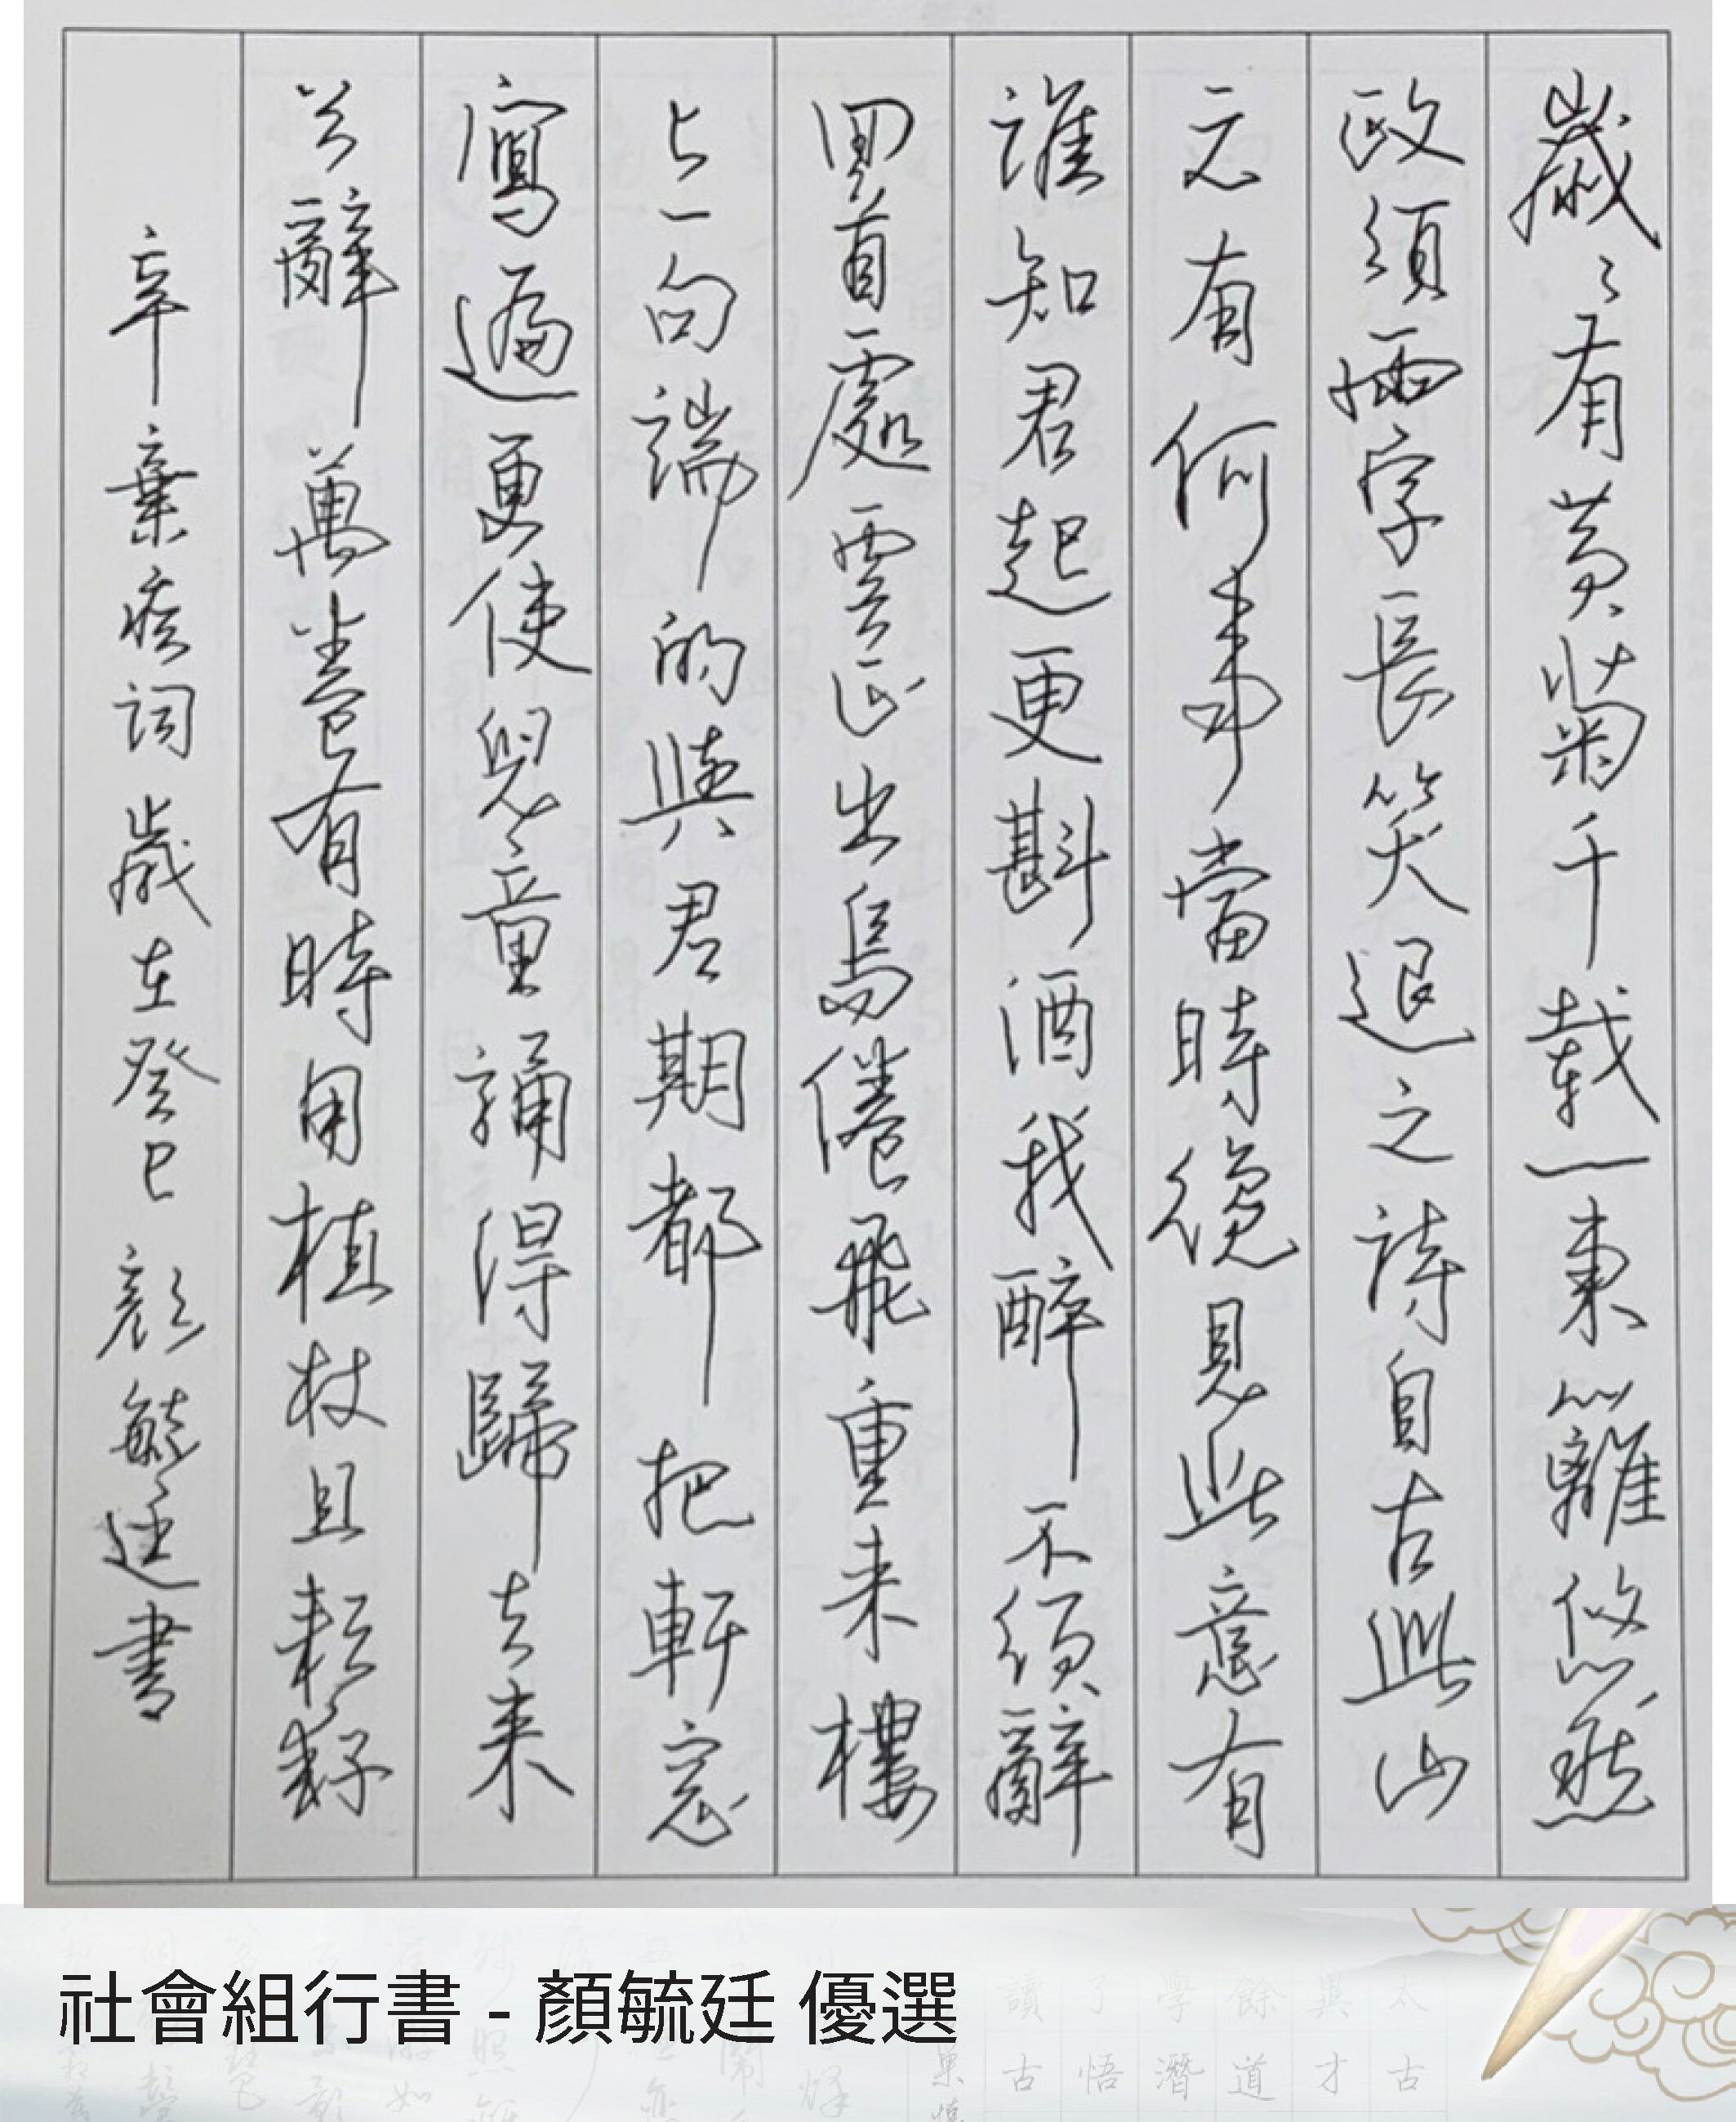 歲〻有黃菊千載一東籬悠然
政須兩字長笑退之詩自古此山
元有何事當時纔見此意有
誰知君起更斟酒我醉不須辭
回首處雲正出鳥倦飛重来樓
上一句端的與君期都把軒窓
寫遍更使兒童誦得歸去来
兮辭萬卷有時用植杖且耘耔
辛棄疾詞歲在癸巳顏毓廷書
社會組行書 - 顏毓廷 優選